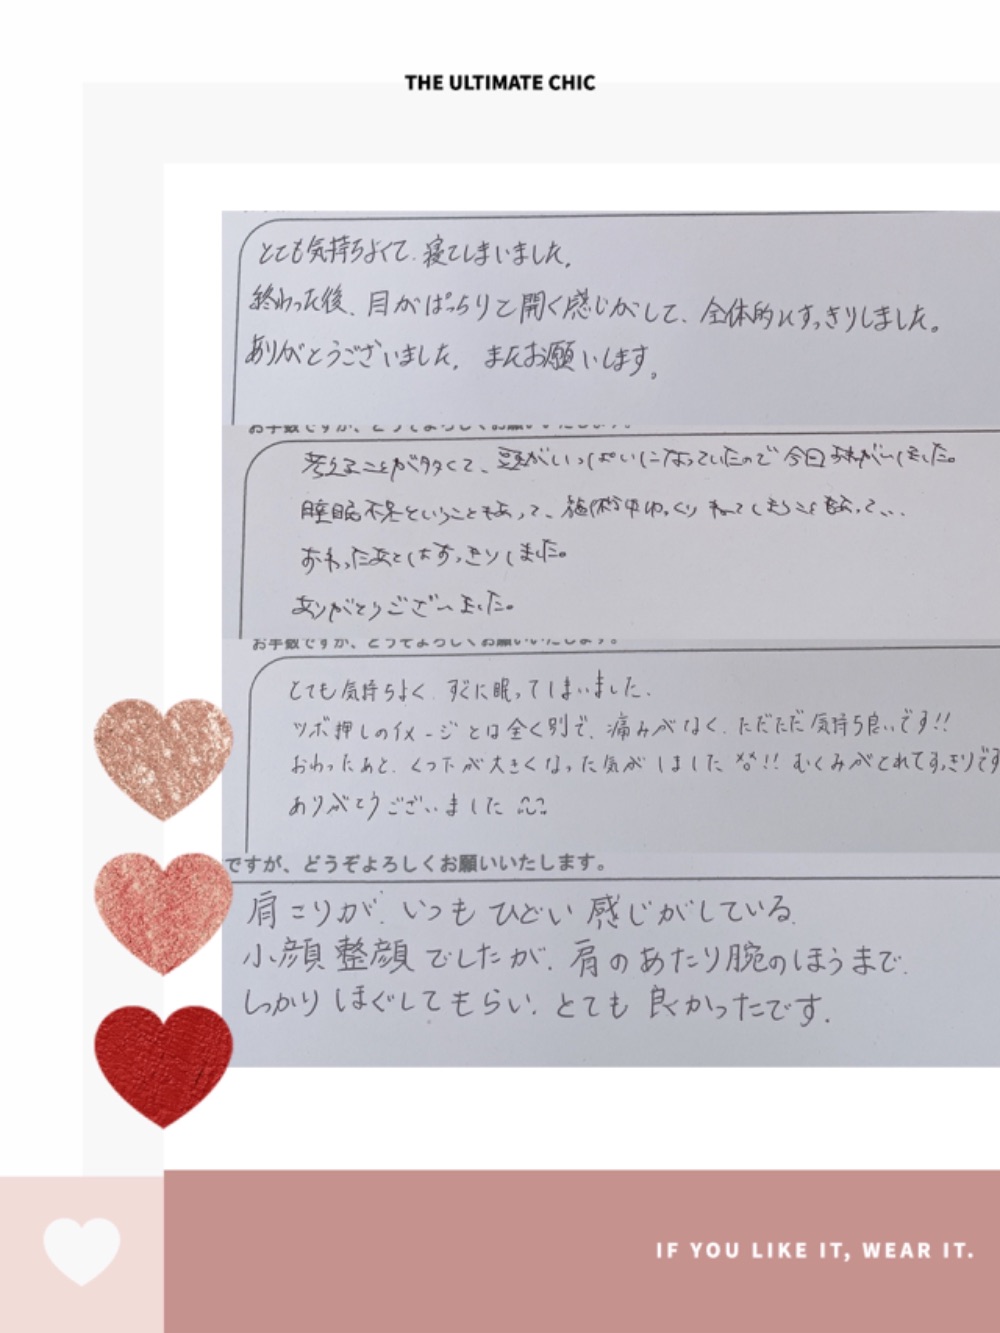 THE ULTIMATE CHIC
とても気持ちよくて、寝てしまいました。
終わった後、目がぱっちりと開く感じがして、全体的にすっきりしました。
ありがとうございました。またお願いします。
お手数ですが、どうぞよろしくお願いいたします。
考えることが多くて、頭がいっぱいになっていたので今日お願いしました。
睡眠不足ということもあって、施術中ゆっくりねてしまうこともあって、..
おわったあとはすっきりしました。
ありがとうございました。
お手数ですが、どうぞよろしくお願いいたします。
とても気持ちよく、すぐに眠ってしまいました。
ツボ押しのイメージとは全く別で、痛みがなく、ただただ気持ち良いです!!
おわったあと、くつ下が大きくなった気がしました!! むくみがとれてすっきりです
ありがとうございました
ですが、どうぞよろしくお願いいたします。
肩こりが、いつもひどい感じがしている。
小顔整顔でしたが、肩のあたり腕のほうまで、
しっかりほぐしてもらい、とても良かったです。
IF YOU LIKE IT, WEAR IT.